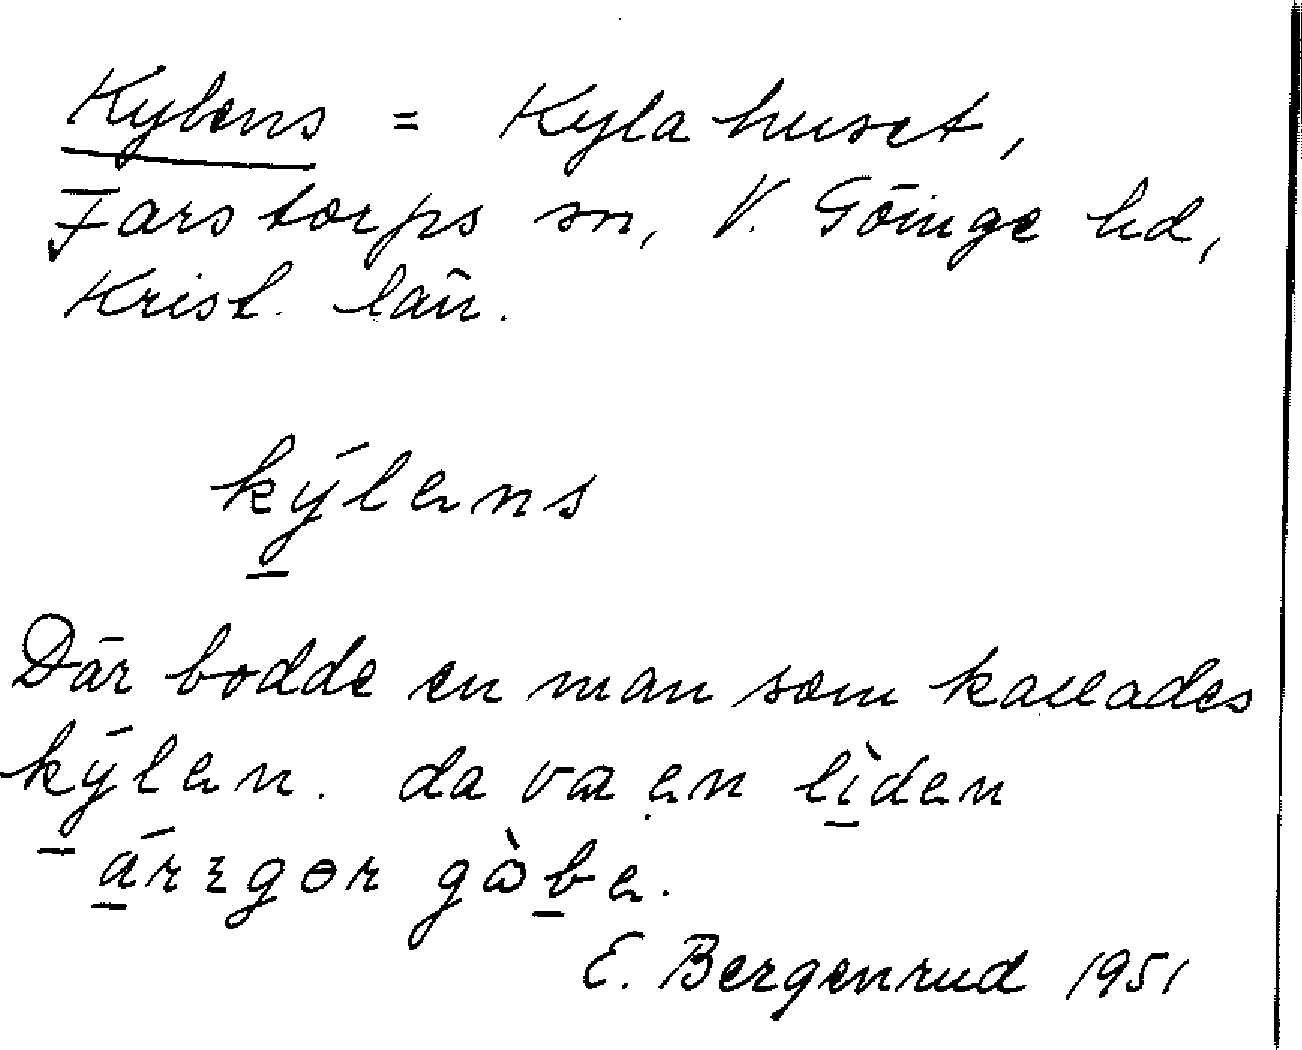 Kylens = Kylahuset,
Farstorps sn, V. Göinge hd,
Krist. län.
kýlens
Där bodde en man som kallades
kýlen. da va en lìden
árgər gàbe.
E. Bergenrud 1951